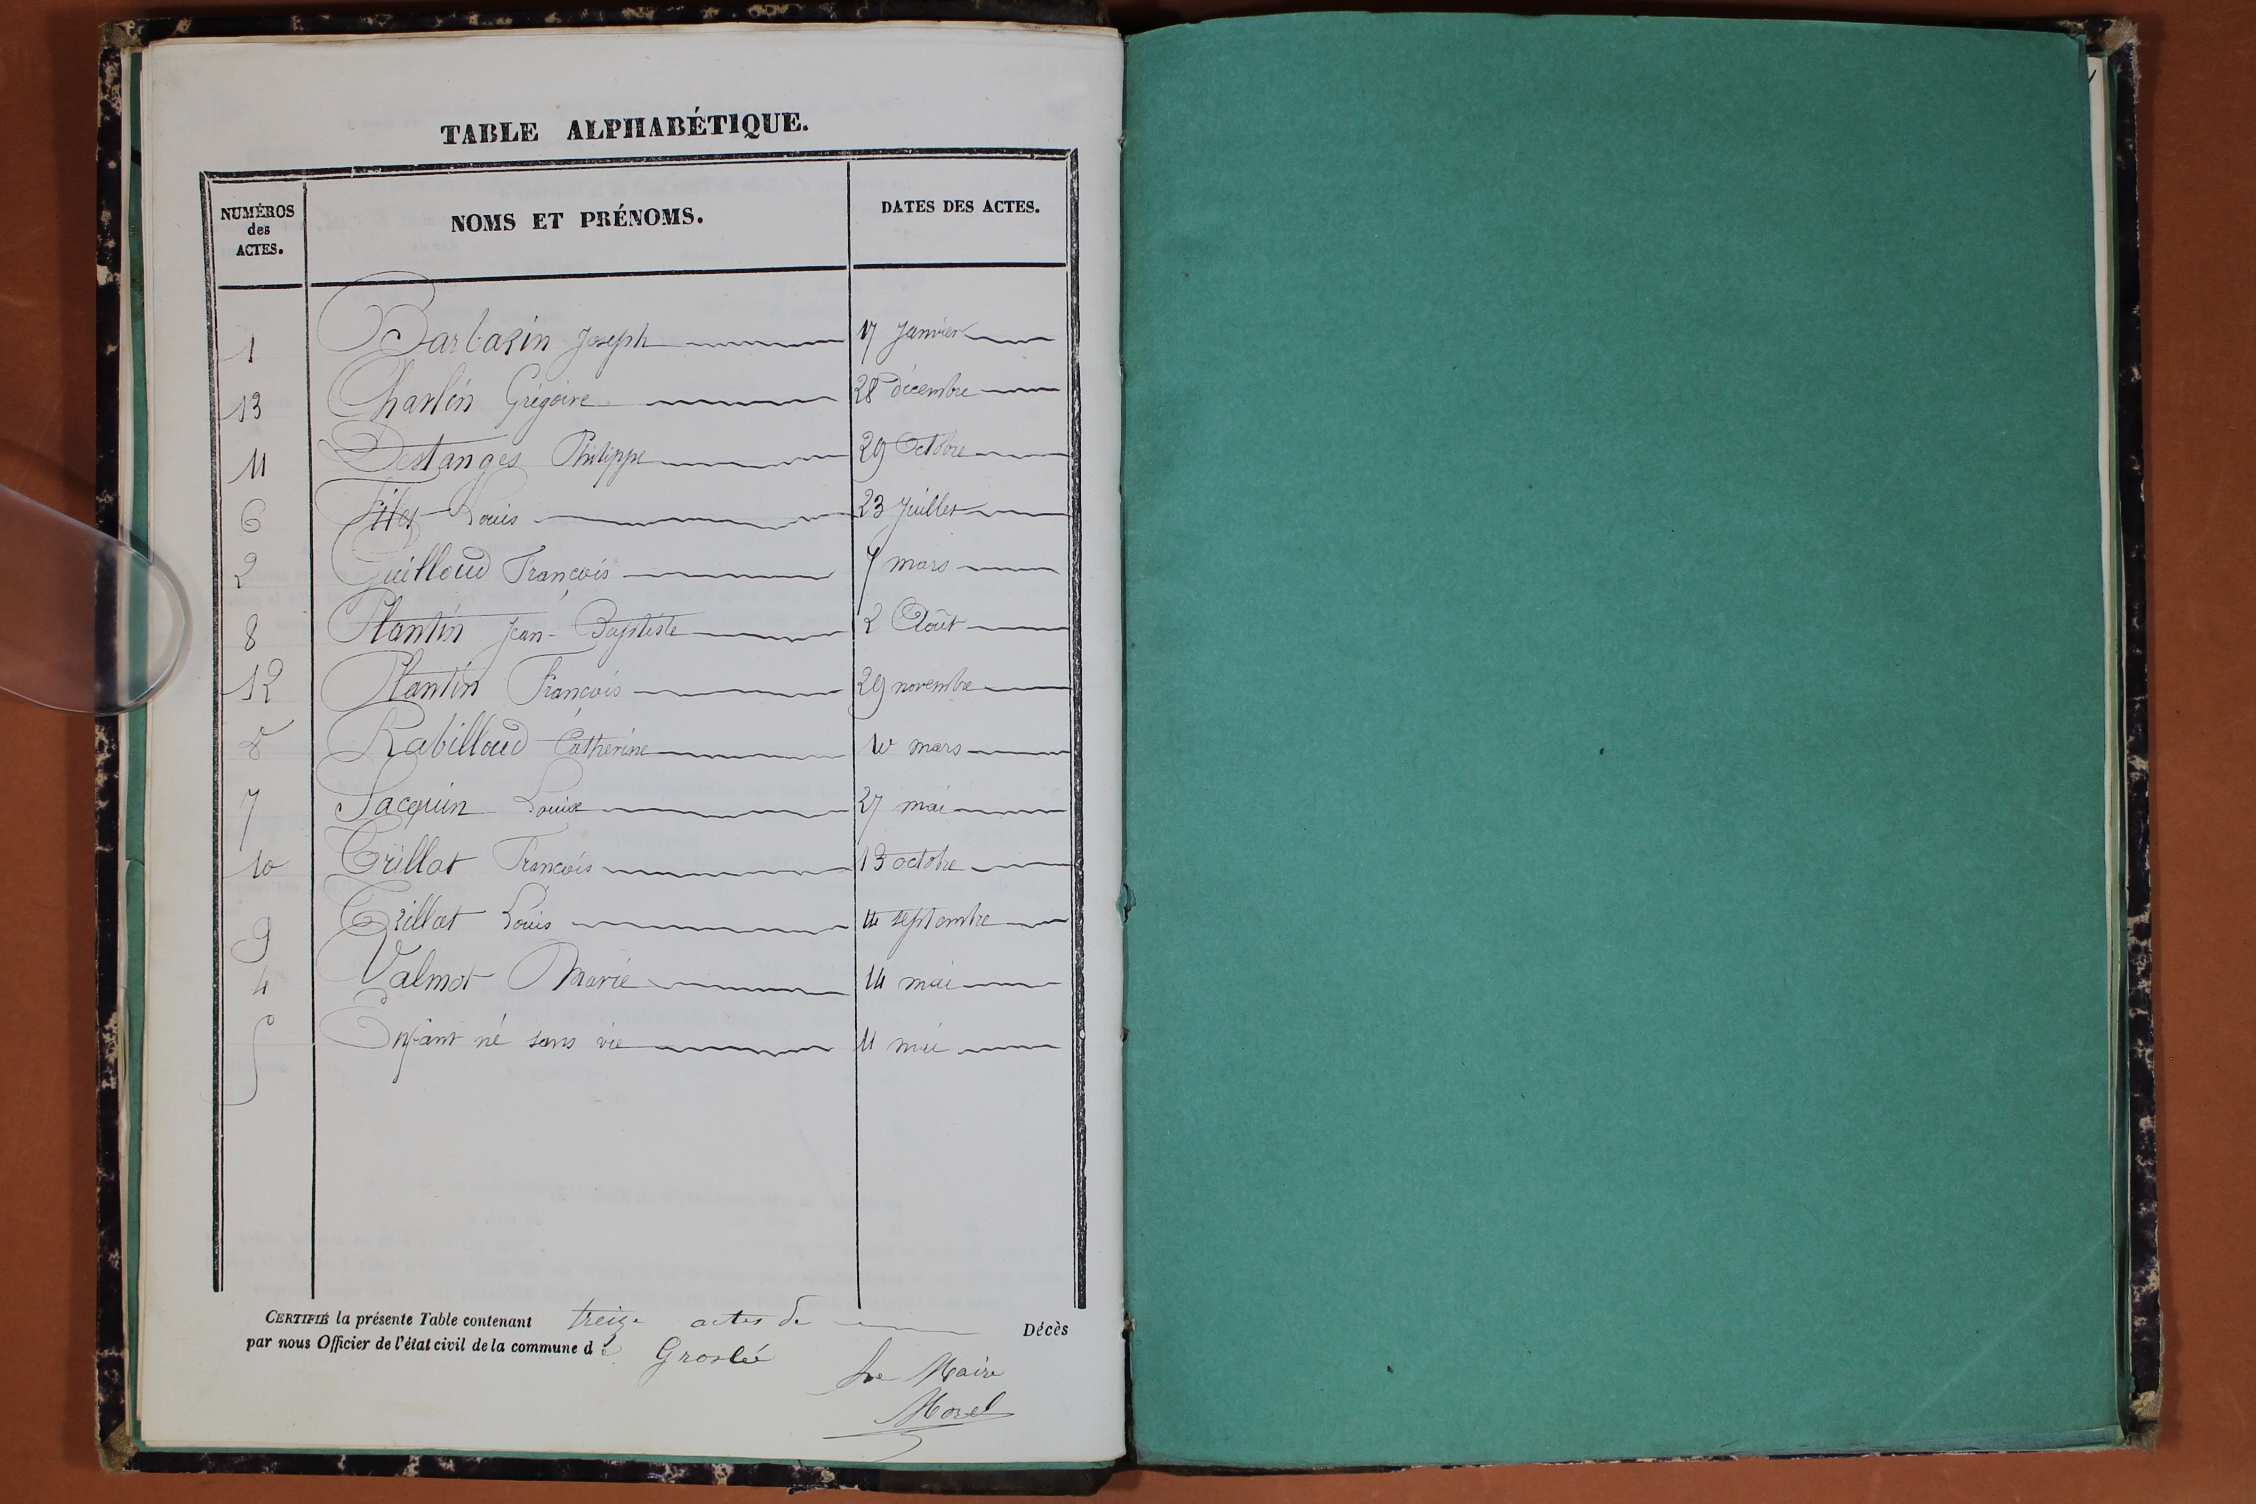 TABLE ALPHABÉTIQUE.
NUMÉROS des ACTES. NOMS ET PRÉNOMS. DATES DES ACTES.
1 Barbarin Joseph 17 Janvier
13 Charlin Grégoire 28 décembre
11 Destanges Philippe 29 Octobre
6 Louis 23 Juillet
2 Guilloud François 7 mars
8 Plantin Jean-Baptiste 2 Août
12 Plantin François 29 novembre
Rabilloud Catherine 10 mars
7 Jacquin Louise 27 mai
10 Trillat François 13 octobre
9 Trillat Louis 14 septembre
4 Valmot Marie 14 mai
5 Enfant né sans vie 11 mai
CERTIFIÉ la présente Table contenant treize actes de Décès
par nous Officier de l'état civil de la commune de Groslée
Le Maire
Morel